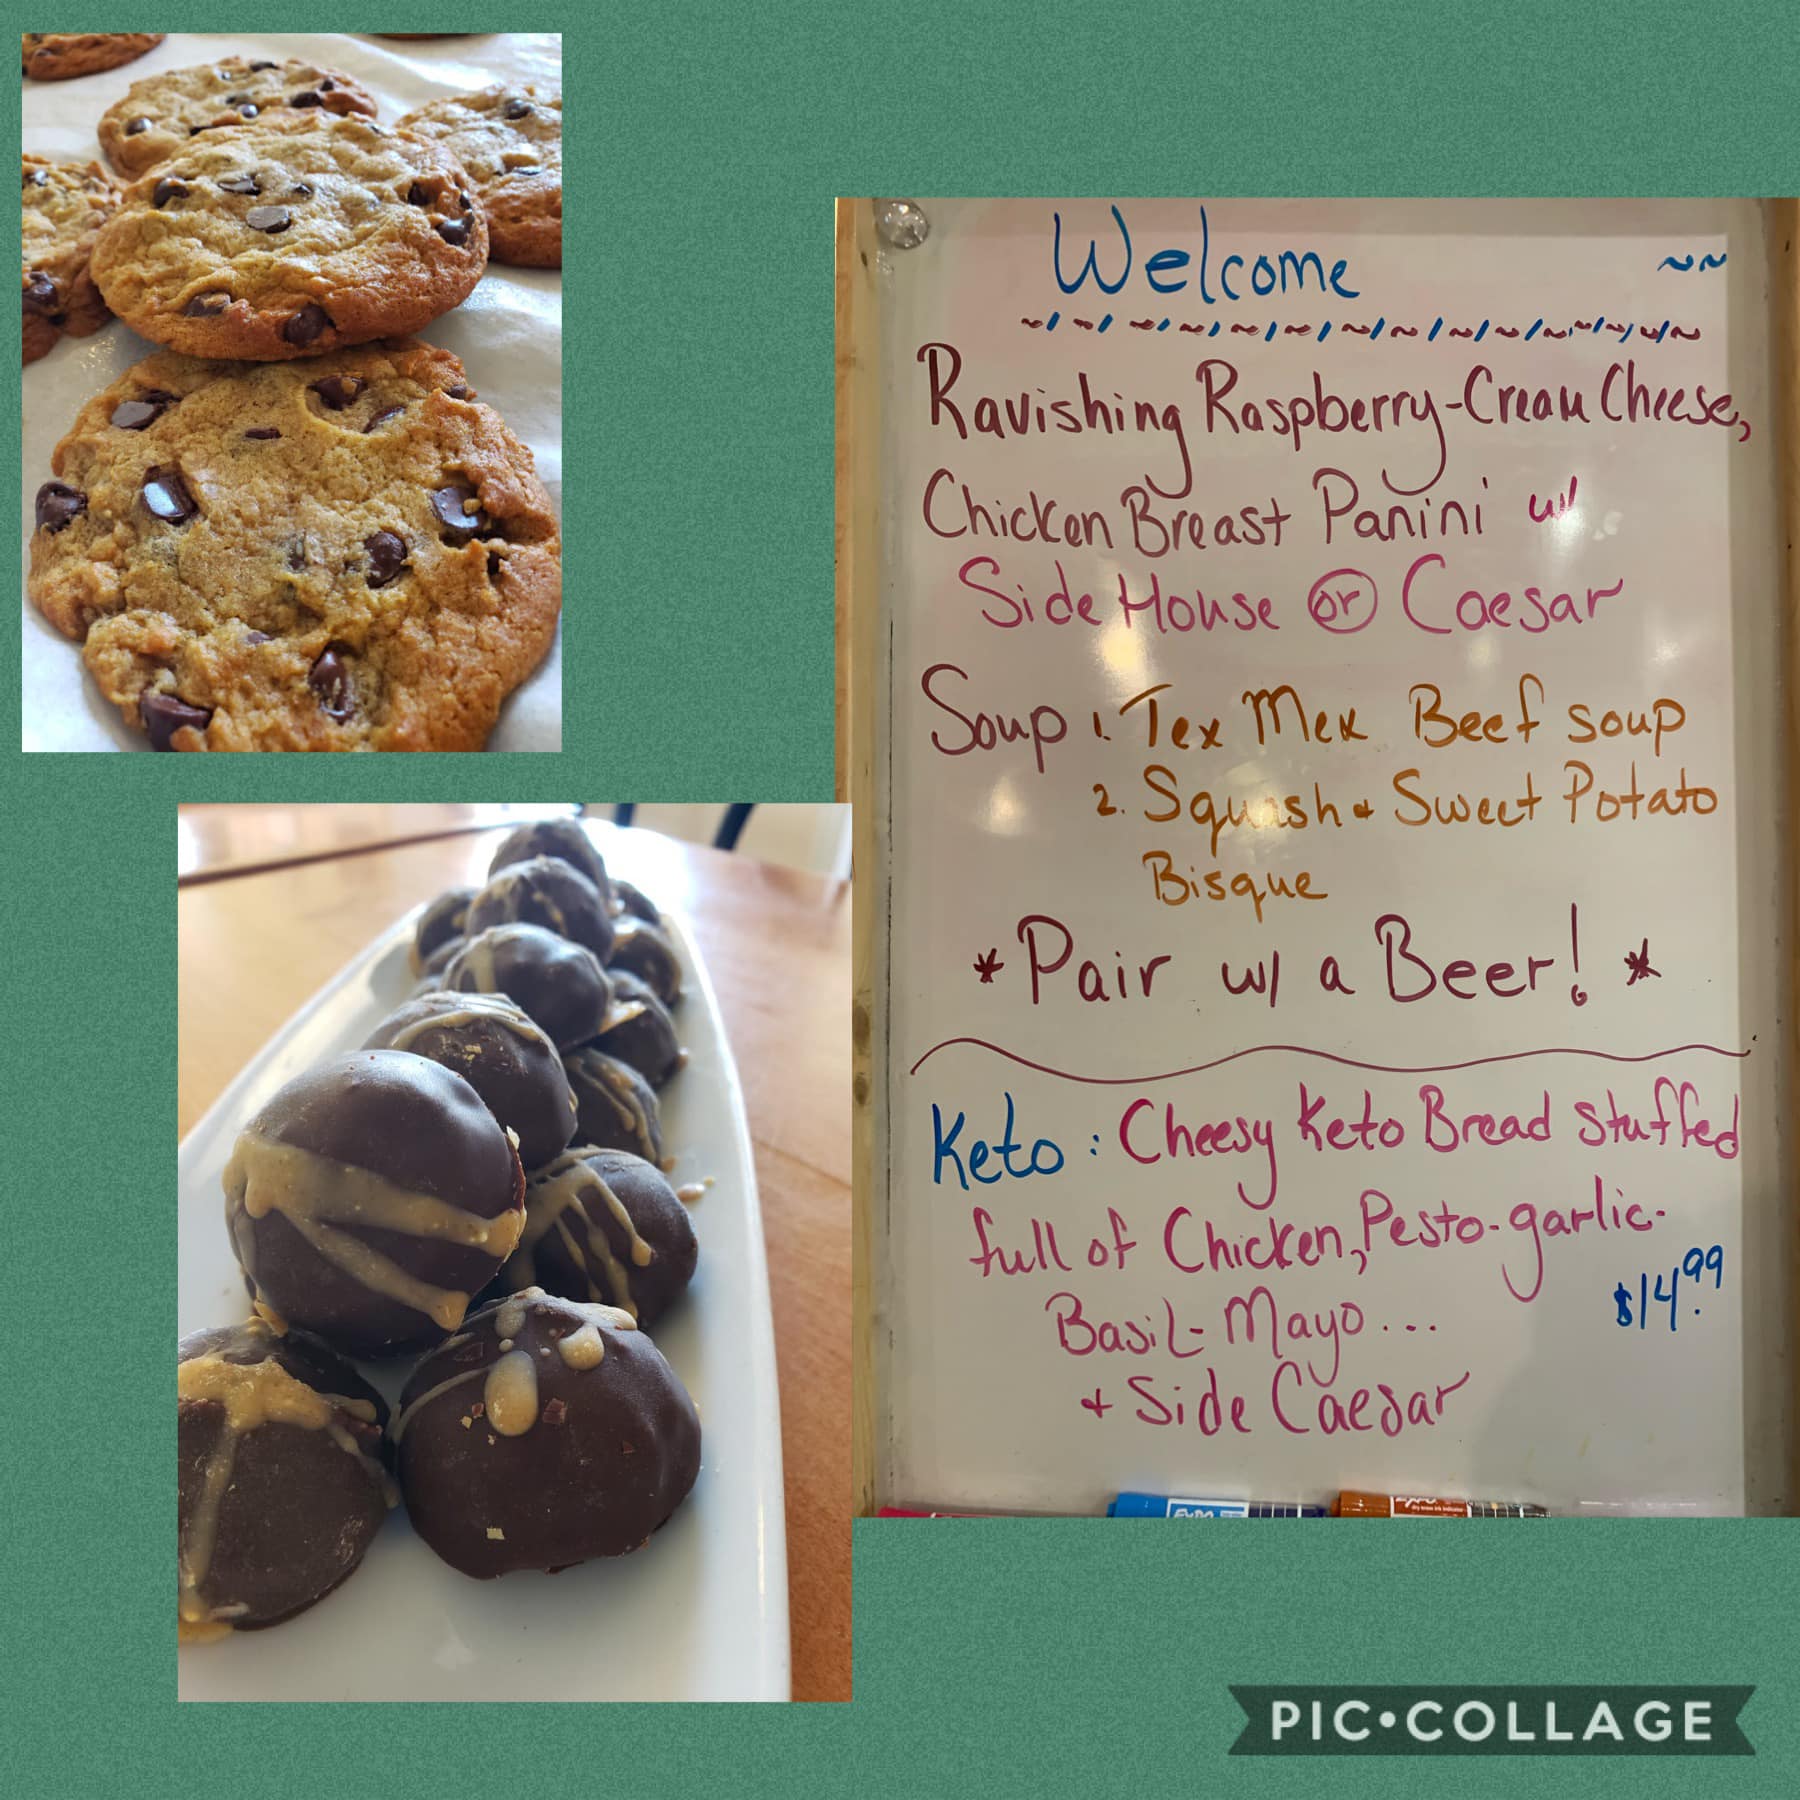 Welcome
Ravishing Raspberry-Cream Cheese,
Chicken Breast Panini w/
Side House or Caesar
Soup 1. Tex Mex Beef soup
2. Squash & Sweet Potato
Bisque
*Pair w/ a Beer! *
Keto: Cheesy Keto Bread stuffed
full of Chicken, Pesto-garlic-
$14.99
Basil-Mayo...
+ Side Caesar
EXPO
EXPO
PIC•COLLAGE